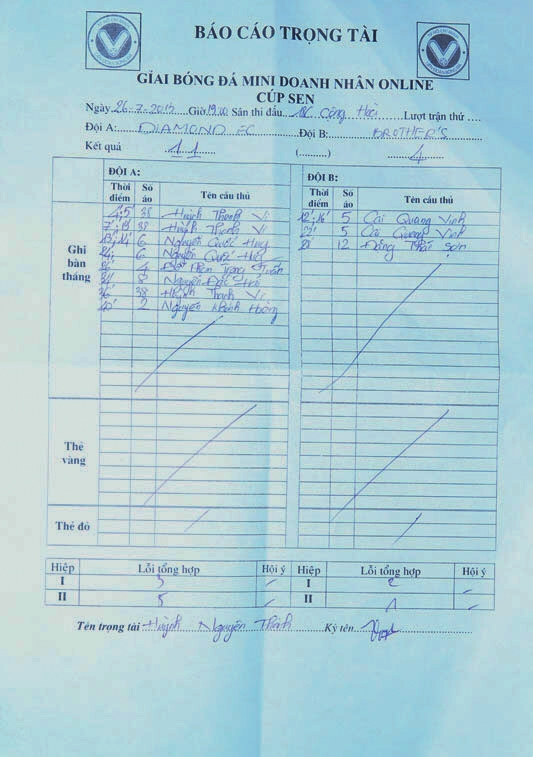 BÁO CÁO TRỌNG TÀI
GIẢI BÓNG ĐÁ MINI DOANH NHÂN ONLINE
CÚP SEN
Ngày 26-7-2017 Giờ 19.00 Sân thi đấu Lượt trận thứ ....
Đội A: DIAMOND FC Đội B: BROTHER'S
Kết quả 11 (..........) 4
ĐỘI A: ĐỘI B:
Thời điểm Số áo Tên cầu thủ Thời điểm Số áo Tên cầu thủ
Ghi bàn thắng
4',5' 38 Huỳnh Thanh Vi 12',16' 5 Cái Quang Vinh
38 Huỳnh Thanh Vi 5 Cái Quang Vinh
13',14' 6 Nguyễn Quốc Huy 12 Đặng Thái Sơn
6 Nguyễn Quốc Huy
4
8 Nguyễn Đắc
38 Huỳnh Thanh Vi
2 Nguyễn Mạnh Hoàng
Thẻ vàng
Thẻ đỏ
Hiệp Lỗi tổng hợp Hội ý Hiệp Lỗi tổng hợp Hội ý
I I 2
II 5 II 1
Tên trọng tài Huỳnh Nguyên Thành Ký tên